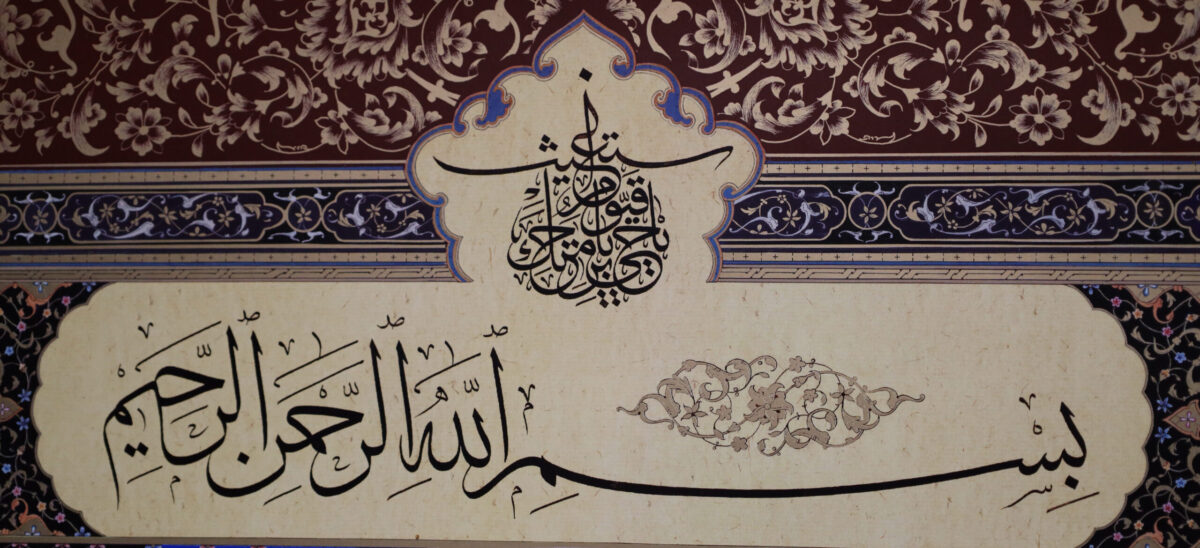 يا حي يا قيوم برحمتك أستغيث
بِسْمِ اللّٰهِ الرَّحْمٰنِ الرَّحِيمِ